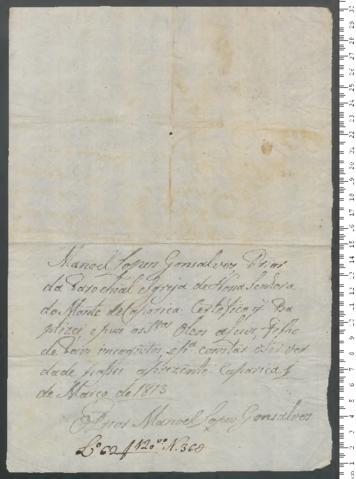 Manoel Lopes Gonsalves Prior
da Parochial Igreja de Nossa Senhora
do Monte de Caparica Certifico q̃ Ba
ptizei e puz os S.tos Oleos a hum filho
de Pais incognitos, e p.a constar
dade passei a prezente Caparica 1
de Março de 1813
O Prior Manoel Lopes Gonsalves
L.o 62 f 120 v.o N. 368